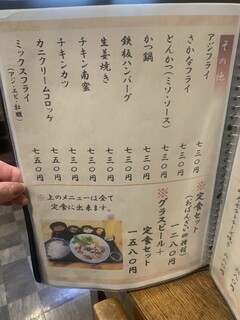 その他
アジフライ 七三〇円
さかなフライ 七三〇円
とんかつ(ミソ・ソース) 七三〇円
かつ鍋 七三〇円
鉄板ハンバーグ 七三〇円
生姜焼き 七三〇円
チキン南蛮 七三〇円
チキンカツ 七三〇円
カニクリームコロッケ 七五〇円
ミックスフライ 七五〇円
(アジ・エビ・牡蠣)
※定食セット
(おばんざい四種類)
一二八〇円
※グラスビール+
定食セット
一五八〇円
※上のメニューは全て
定食に出来ます。